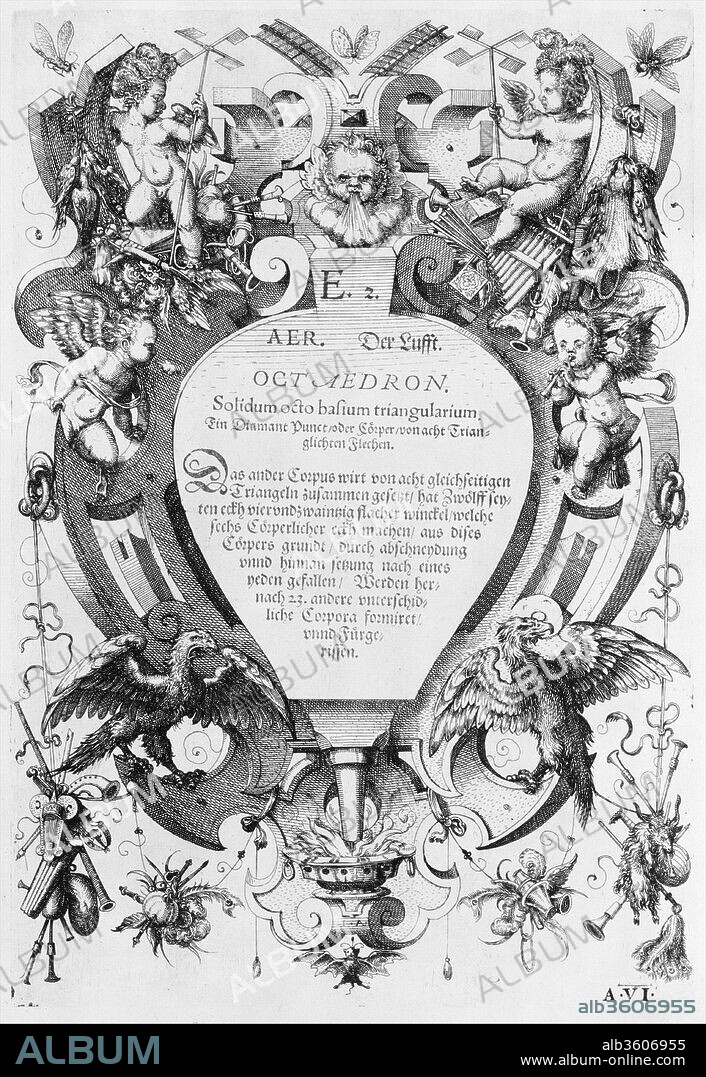 E. 2.
AER. Der Lufft.
OCTAEDRON.
Solidum octo basium triangularium,
Ein Diamant Punct/oder Cörper/von acht Trian-
glichten Flechen.
Das ander Corpus wirt von acht gleichseitigen
Triangeln zusammen gesetzt/ hat Zwölff sey-
ten eckh viervndzwaintzig flacher winckel/welche
sechs Cörperlicher eckh machen/ aus dises
Cörpers grundt/ durch abschneydung
vnnd hinnan setzung nach eines
yeden gefallen/ Werden her-
nach 23. andere vnterschid-
liche Corpora formiret/
vnnd Fürge-
rissen.
A·VI·
alb3606955
ALBUM
alb3606955
www.album-online.com